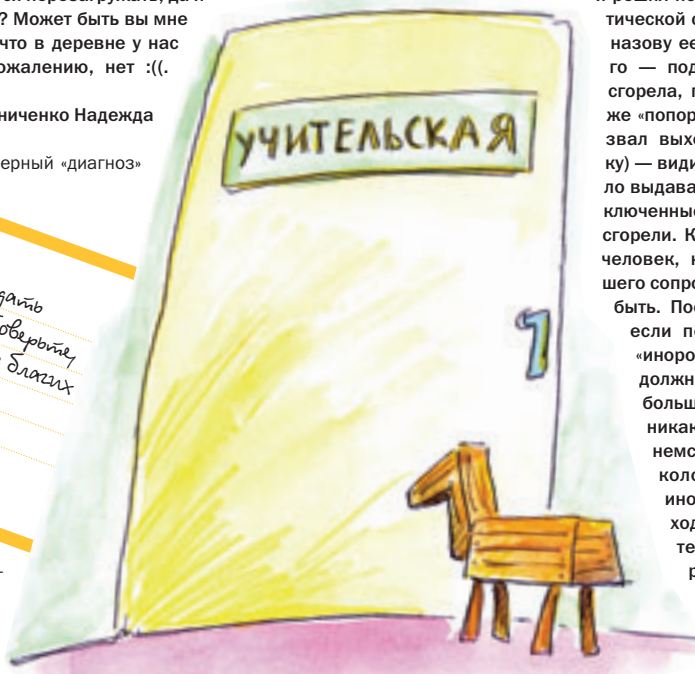 перезагружать, да и
? Может быть вы мне
что в деревне у нас
ожалению, нет :((.
ниченко Надежда
ерный «диагноз»
дать
оверьте,
благих
УЧИТЕЛЬСКАЯ
тической
назову ее
го — под
сгорела,
же «попор
звал выхо
ку) — види
ло выдава
ключенные
сгорели. К
человек,
шего сопро
быть. Пос
если по
«иноро
должн
больш
никак
немс
коло
ино
ход
те
р